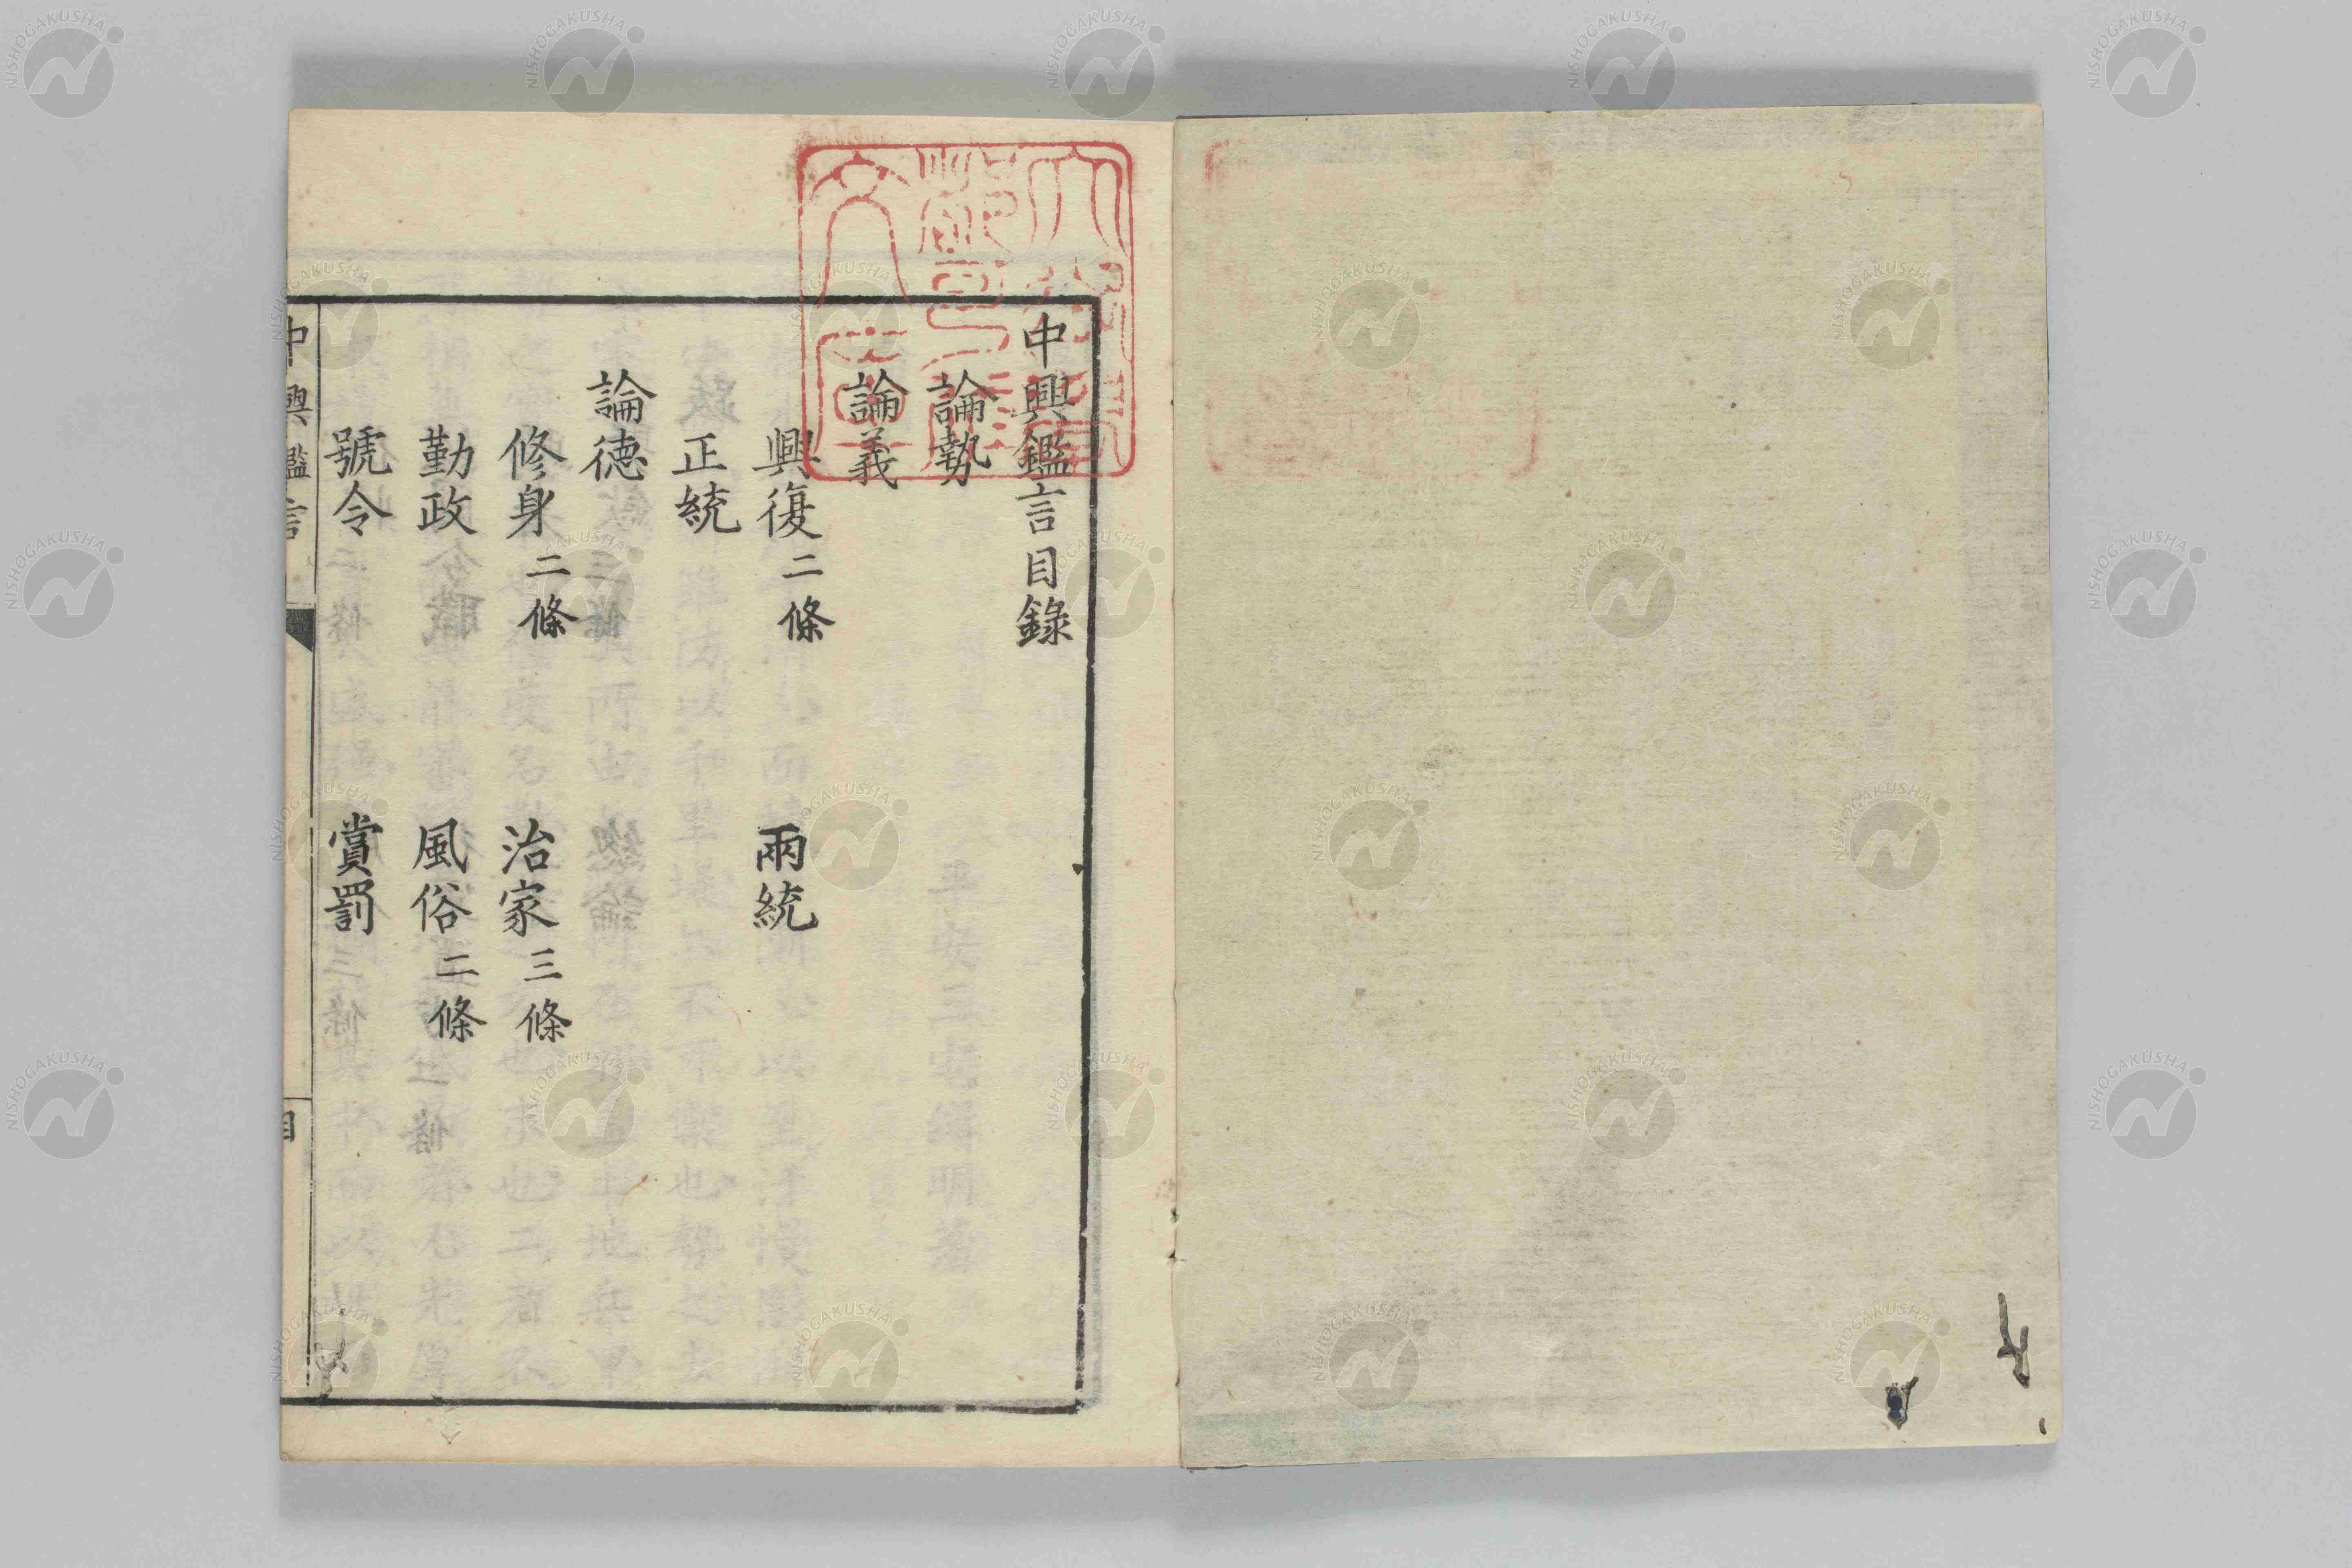 中興鑑言目錄
論勢
論義
興復二條 兩統
正統
論德
修身二條 治家三條
勤政 風俗二條
號令 賞罰
中興鑑言 目
NISHOGAKUSHA